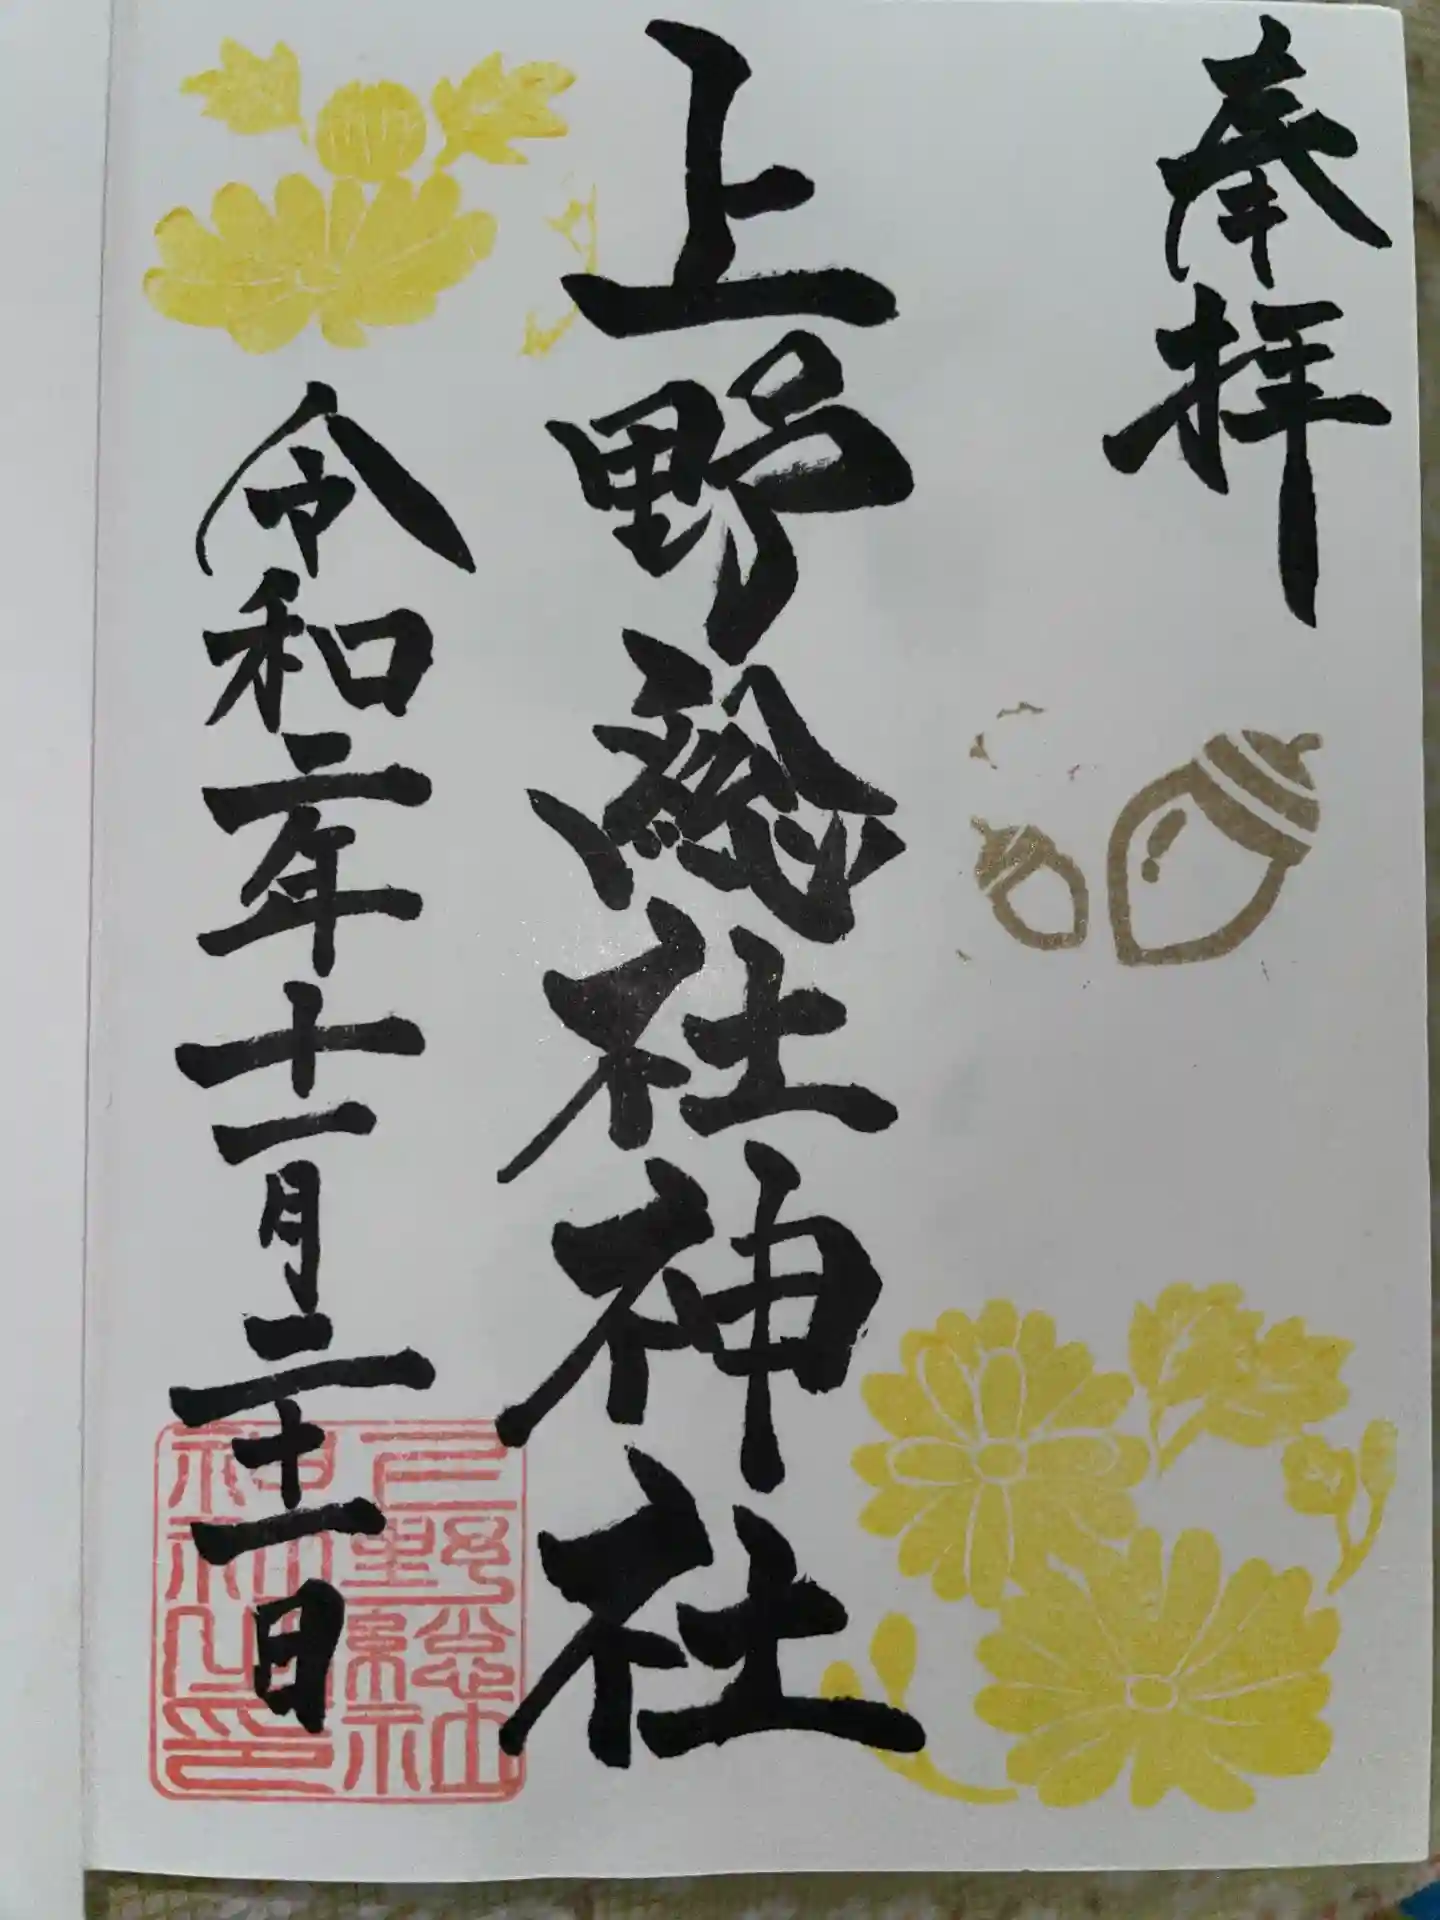 奉拝
上野総社神社
令和二年十一月二十一日
上野総社
神社之印